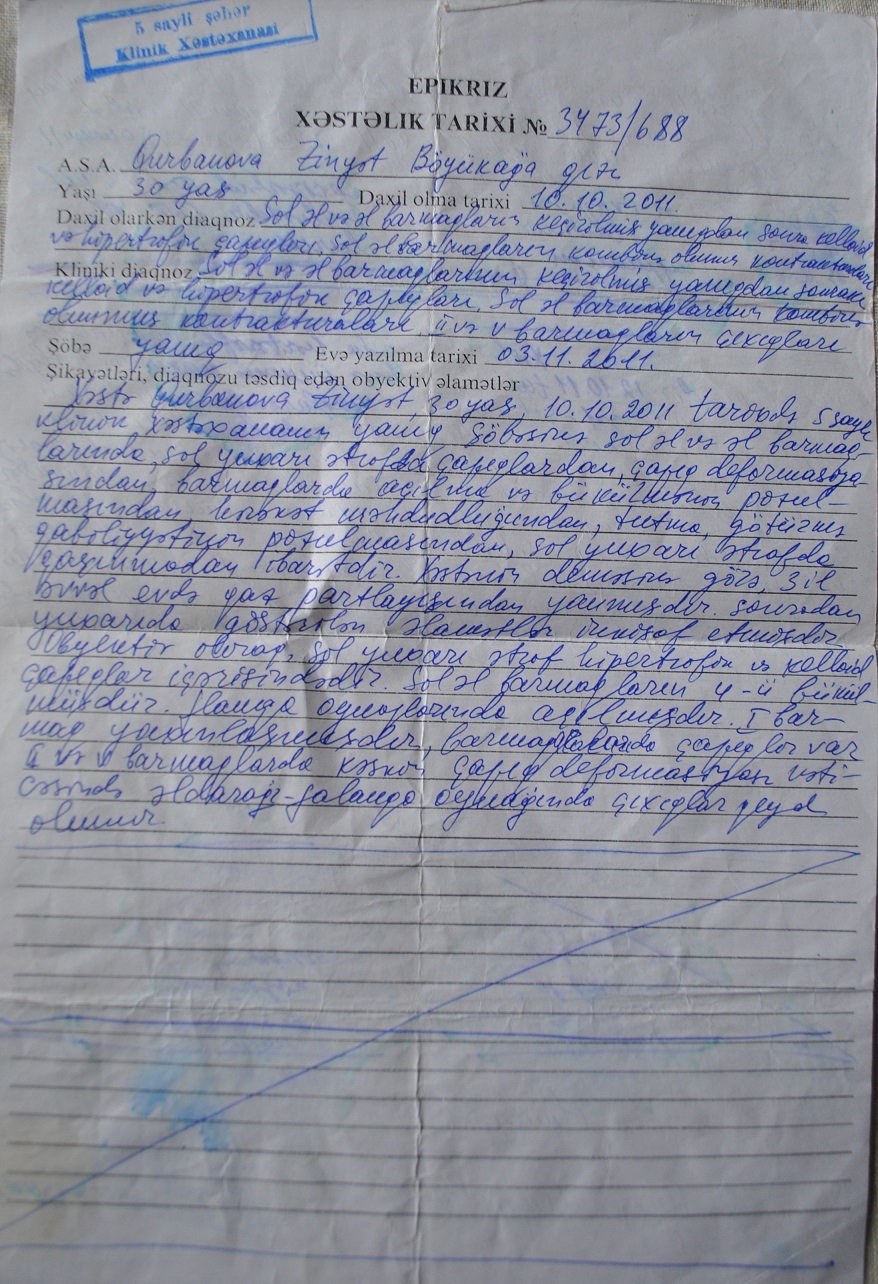 5 sayli şəhər
Klinik Xəstəxanasi
EPIKRIZ
XƏSTƏLIK TARIXI № 3473/688
A.S.A. Qurbanova Zinyət Böyükağa qızı
Yaşı 30 yaş Daxil olma tarixi 10.10.2011.
Daxil olarkən diaqnoz Sol əl və əl barmaqların keçirilmiş yanıqdan sonra kelloid
və hipertrofik çapıqları, sol əl barmaqların kombinə olunmuş kontrakturaları
Kliniki diaqnoz Sol əl və əl barmaqlarının keçirilmiş yanıqdan sonrakı
kelloid və hipertrofik çapıqları. Sol əl barmaqlarının kombinə
olunmuş kontrakturaları. II və V barmaqların çıxıqları
Şöbə yanıq Evə yazılma tarixi 03.11.2011.
Şikayətləri, diaqnozu təsdiq edən obyektiv əlamətlər
Xəstə Qurbanova Zinyət, 30 yaş, 10.10.2011 tarixdə 5 saylı
klinik xəstəxananın yanıq şöbəsinə sol əl və əl barmaq-
larında, sol yuxarı ətrafda çapıqlardan, çapıq deformasiya-
sından, barmaqlarda açılma və bükülmənin pozul-
masından hərəkət məhdudluğundan, tutma, götürmə
qabiliyyətinin pozulmasından, sol yuxarı ətrafda
qaşınmadan ibarətdir. Xəstənin deməsinə görə, 3 il
əvvəl evdə qaz partlayışından yanmışdır. Sonradan
yuxarıda göstərilən əlamətlər inkişaf etmişdir.
Obyektiv olaraq, sol yuxarı ətraf hipertrofik və kelloid
çapıqlar içərisindədir. Sol əl barmaqların 4-ü bükül-
müşdür. falanqa oynaqlarında açılmışdır. I bar-
maq yaxınlaşmışdır, barmaqlarında çapıqlar var
II və V barmaqlarda kəskin çapıq deformasiyası nəti-
cəsində əldarağı-falanqa oynağında çıxıqlar qeyd
olunur.